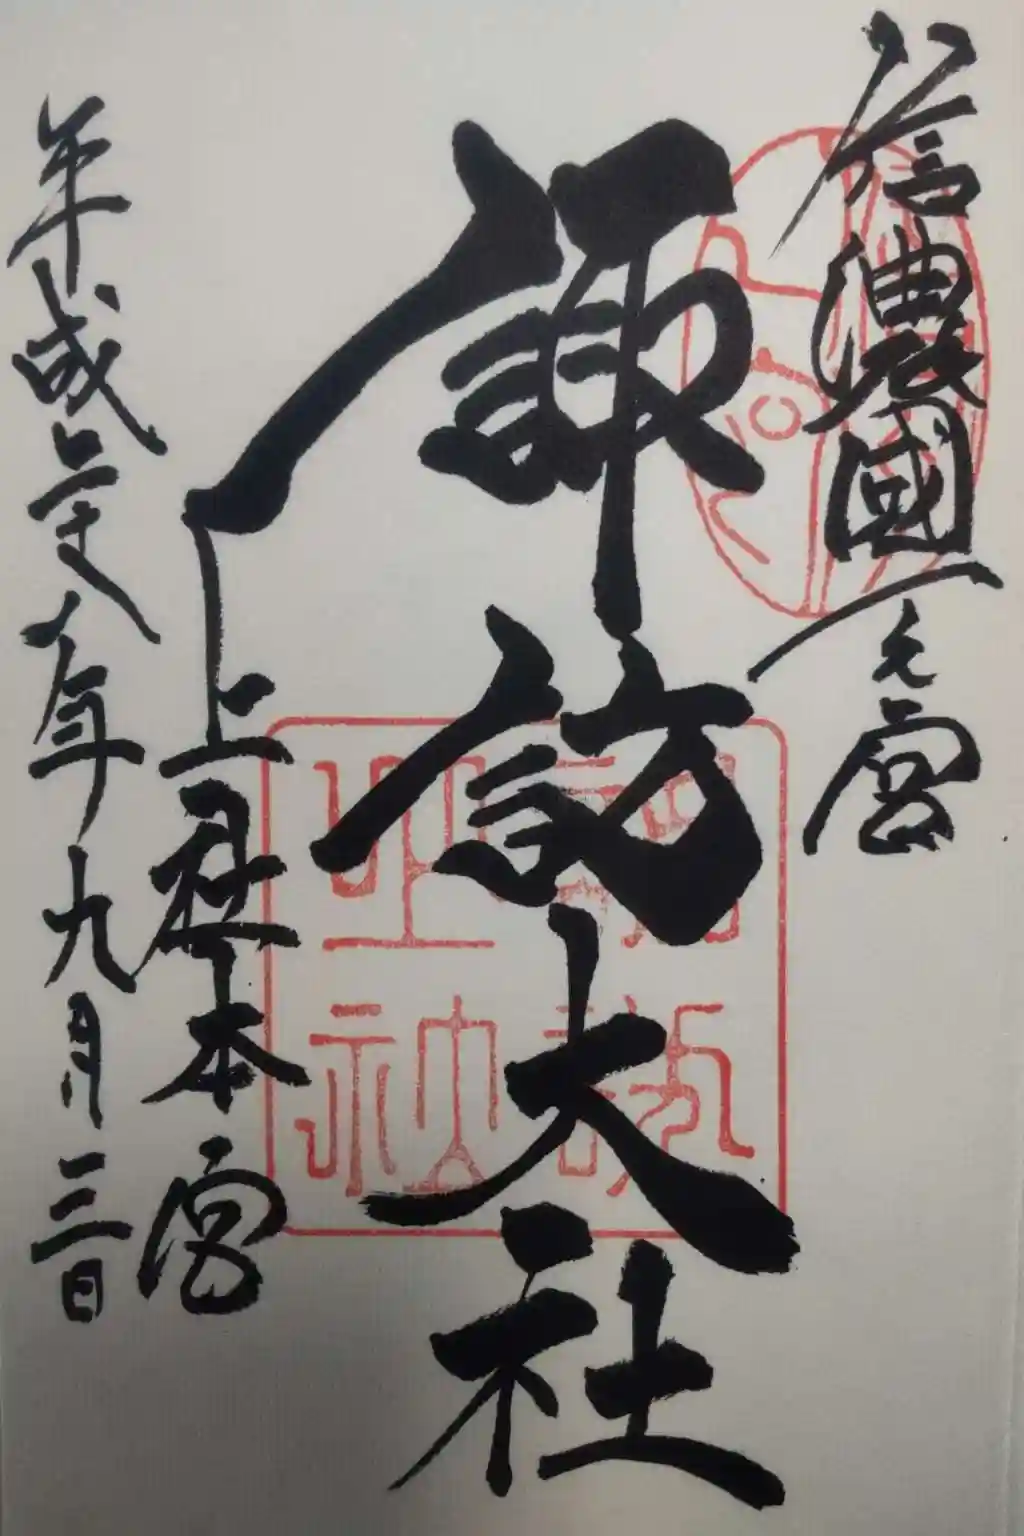 信濃國一之宮
諏訪大社
上社本宮
平成二十八年九月三日